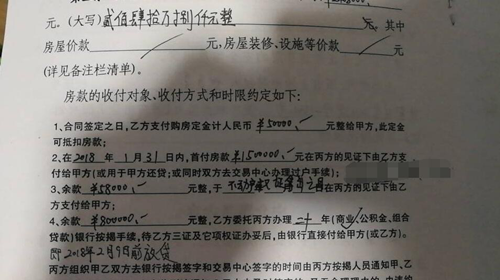 元。（大写）贰佰肆拾万捌仟元整 元。其中
房屋价款 元，房屋装修、设施等价款 元
（详见备注栏清单）。
房款的收付对象、收付方式和时限约定如下：
1、合同签定之日，乙方支付购房定金计人民币 ¥50000.- 元整给甲方，此定金
可抵扣房款；
2、在2018年1月31日内，首付房款¥1500000.-元在丙方的见证下由乙方支
付给甲方（或用于甲方还贷；或同时双方去交易中心办理过户手续）；
3、余款 ¥58000.- 元整，于 在丙方的见证下由乙
方支付给甲方；
4、余款 ¥800000.- 元，乙方委托丙方办理 二十 年（商业、公积金、组合
贷款）银行按揭手续，待乙方三证及它项权证办妥后，由银行直接付给甲方（或乙方）。
即2018年2月9日前放贷
丙方组织甲乙双方去银行按揭签字和交易中心签字的时间由丙方按揭人员通知甲、乙